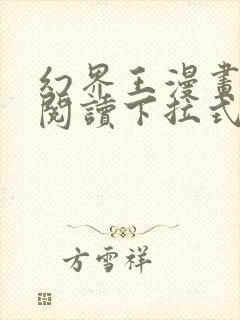 幻界王漫畫
閱讀下拉式
方雪祥